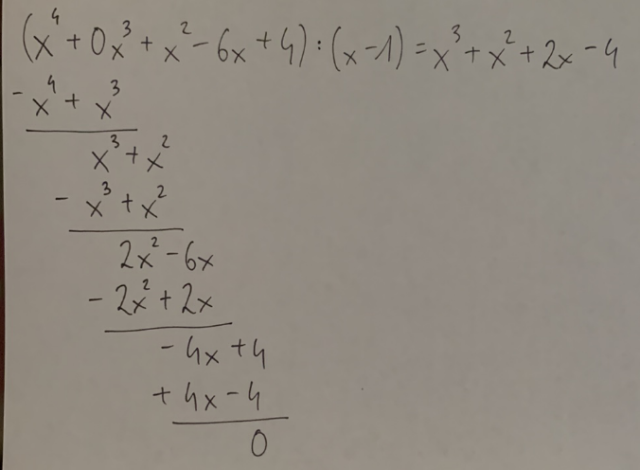 (x⁴ + 0x³ + x² - 6x + 4) : (x - 1) = x³ + x² + 2x - 4
- x⁴ + x³
x³ + x²
- x³ + x²
2x² - 6x
- 2x² + 2x
- 4x + 4
+ 4x - 4
0